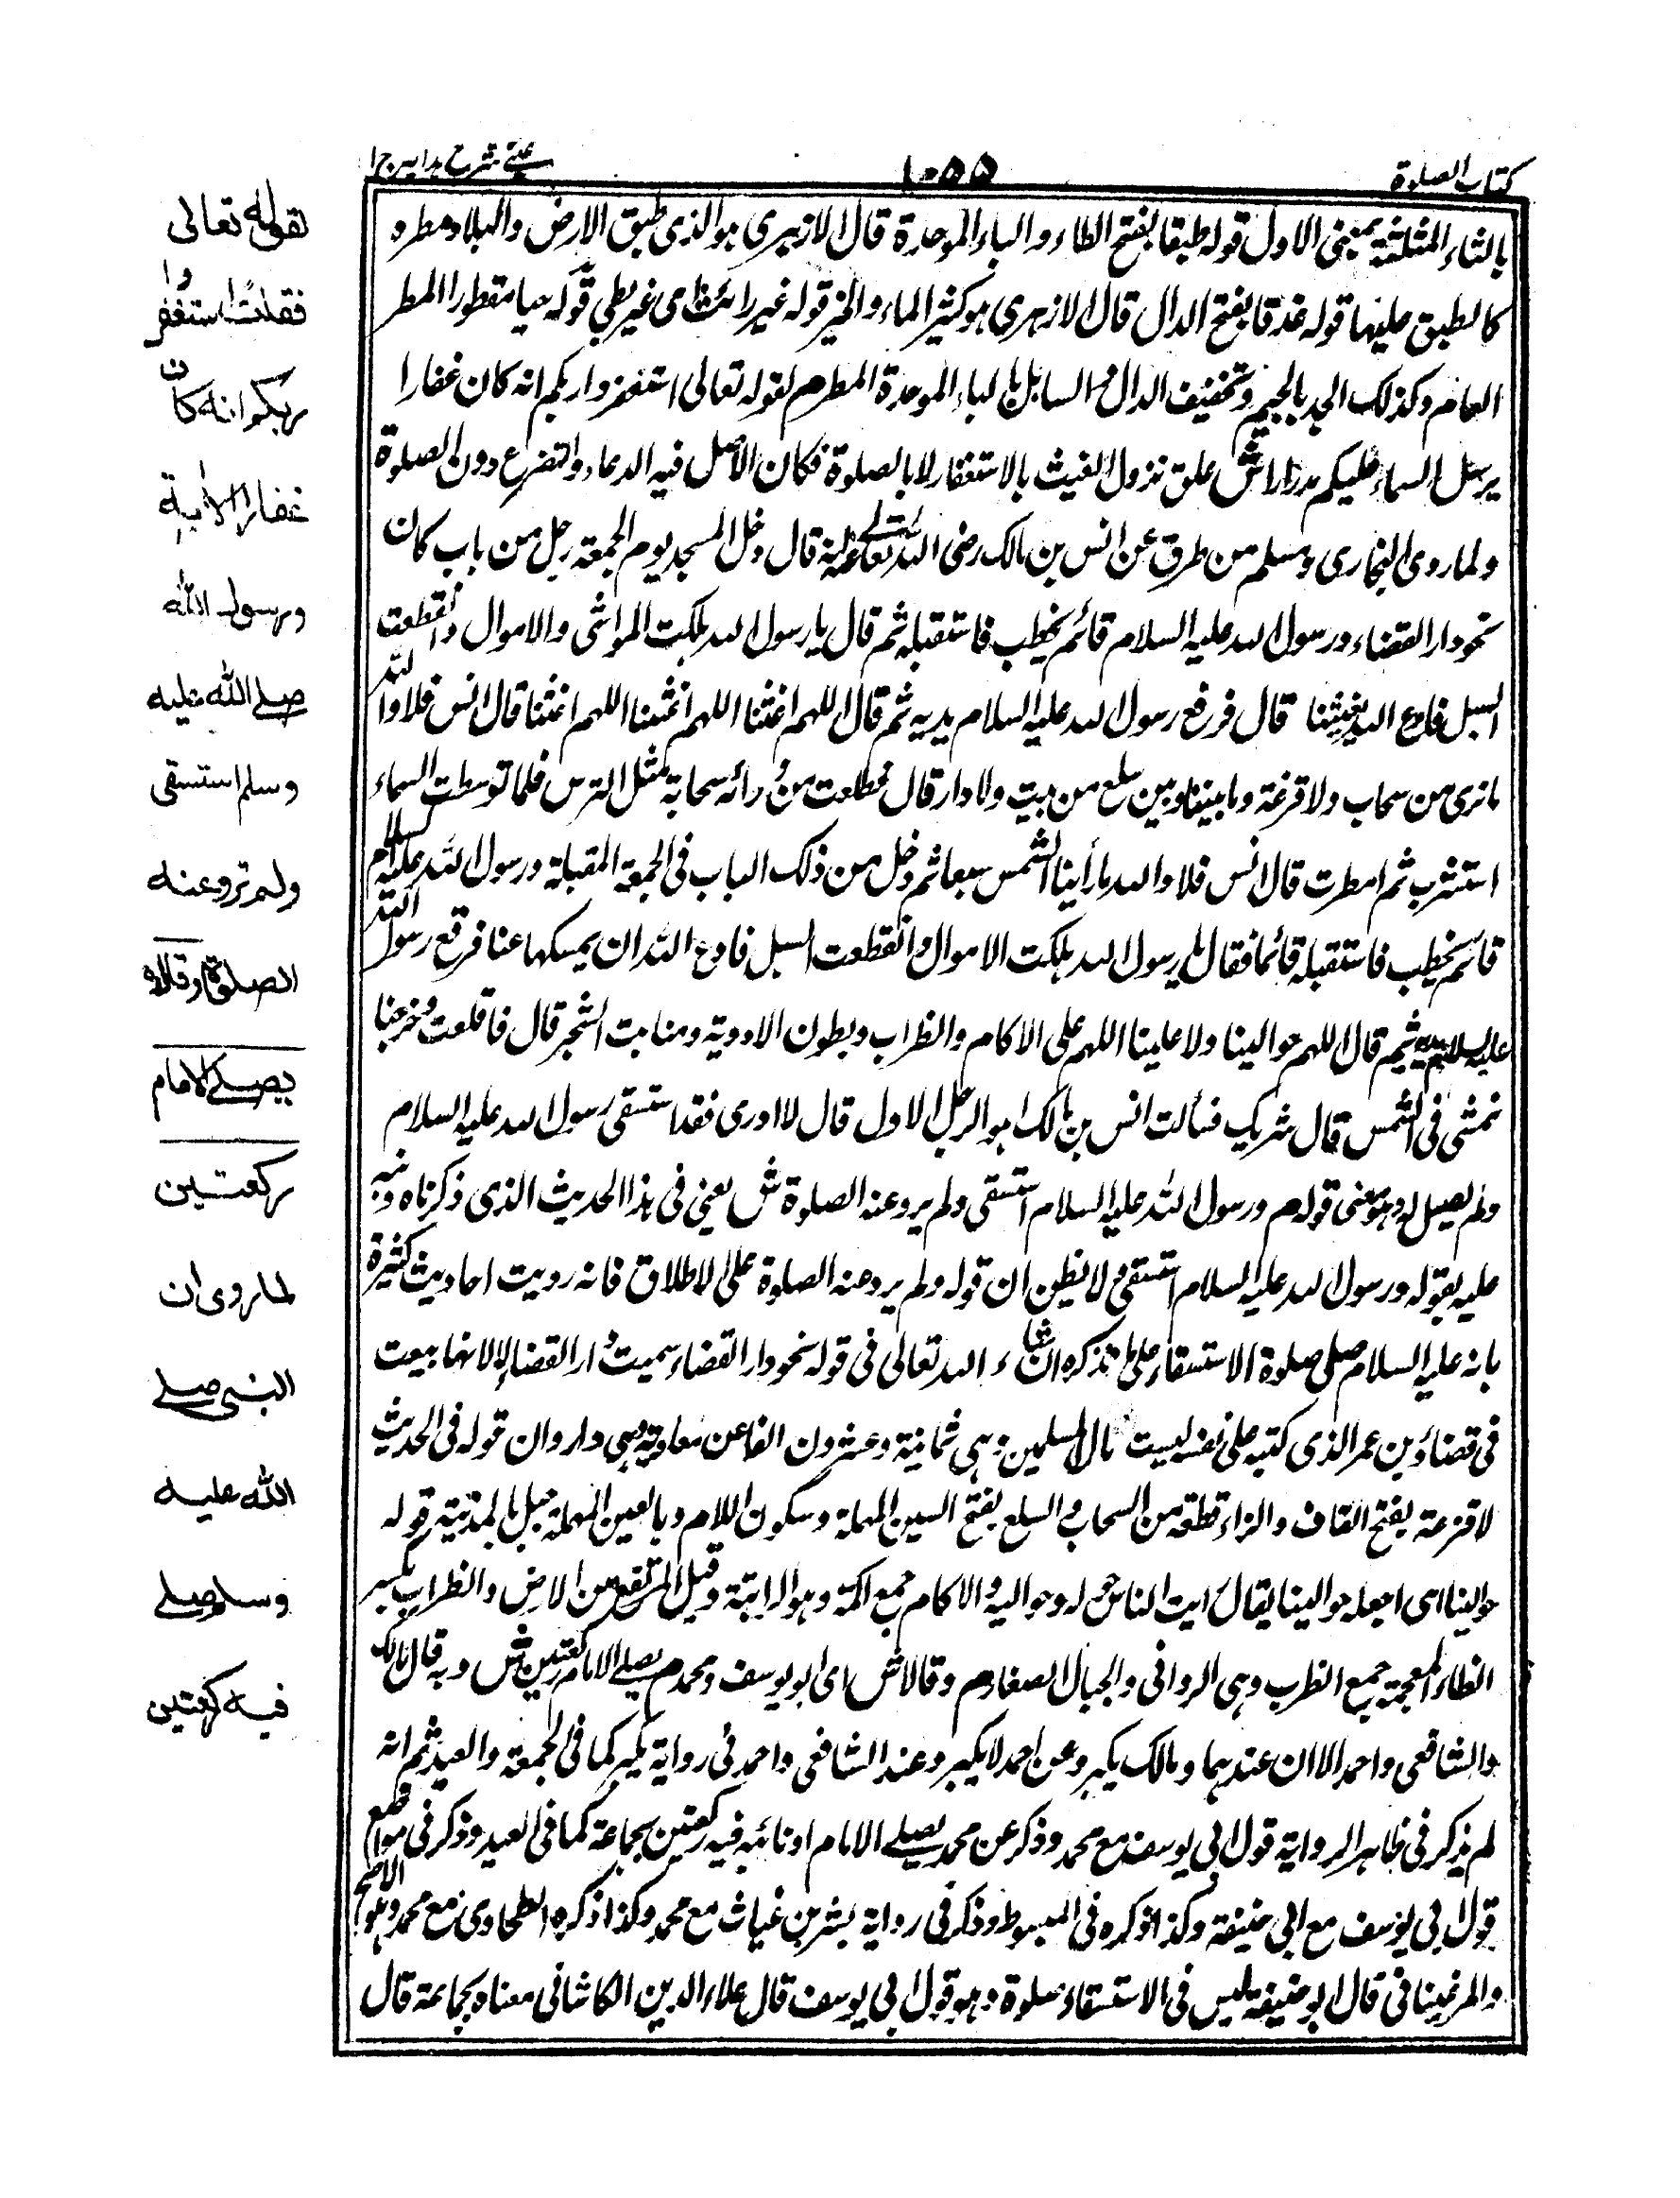 كتاب الصلوة
١٠٥٥
عينى شرح هدايه ج ١
بالثاء المثلثة بمعنى الاول قوله طبقا بفتح الطاء والباء الموحدة قال الازهرى هو الذى طبق الارض والبلاد مطره
كالطبق عليها قوله غدقا بفتح الدال قال الازهرى هو كثير الماء والخير قوله غير رائث اى غير بطى قوله سيا مقطورا المطر
العام وكذلك المجد بالجيم وتخفيف الدال م السابل بالباء الموحدة المطر م لقوله تعالى استغفروا ربكم انه كان غفارا
يرسل السماء عليكم مدرارا ش علق نزول الغيث بالاستغفار لا بالصلوة فكان الاصل فيه الدعاء والتضرع دون الصلوة
ولما روى البخارى ومسلم من طرق عن انس بن مالك رضى الله تعالى عنه قال دخل المسجد يوم الجمعة رجل من باب كان
نحو دار القضاء ورسول الله عليه السلام قائم يخطب فاستقبله ثم قال يا رسول الله هلكت المواشى والاموال وانقطعت
السبل فادع الله يغيثنا قال فرفع رسول الله عليه السلام يديه ثم قال اللهم اغثنا اللهم اغثنا اللهم اغثنا قال انس فلا والله
ما نرى من سحاب ولا قزعة وما بيننا وبين سلع من بيت ولا دار قال فطلعت من ورائه سحابة مثل الترس فلما توسطت السماء
استنثرب ثم امطرت قال انس فلا والله ما رأينا الشمس سبعا ثم دخل من ذلك الباب فى الجمعة المقبلة ورسول الله عليه السلام
قائم يخطب فاستقبله قائما فقال يا رسول الله هلكت الاموال وانقطعت السبل فادع الله ان يمسكها عنا فرفع رسول الله
عليه السلام يديه ثم قال اللهم حوالينا ولا علينا اللهم على الاكام والظراب وبطون الاودية ومنابت الشجر قال فاقلعت وخرجنا
نمشى فى الشمس قال شريك فسألت انس بن مالك اهو الرجل الاول قال لا ادرى فقد استسقى رسول الله عليه السلام
ولم يصل له وهو معنى قوله م ورسول الله عليه السلام استسقى ولم يرو عنه الصلوة ش يعنى فى هذا الحديث الذى ذكرناه ونبه
عليه بقوله ورسول الله عليه السلام استسقى ولا نظن ان قوله ولم يرو عنه الصلوة على الاطلاق فانه رويت احاديث كثيرة
بانه عليه السلام صلى صلوة الاستسقاء على ما نذكره ان شاء الله تعالى فى قوله نحو دار القضاء سميت دار القضاء لانها بيعت
فى قضاء دين عمر الذى كتبه على نفسه لبيت مال المسلمين وهى ثمانية وعشرون الفا عن معاوية وهى دار وان قوله فى الحديث
لا قزعة بفتح القاف والزاء قطعة من السحاب و السلع بفتح السين المهملة وسكون اللام وبالعين المهملة جبل بالمدينة قوله
حوالينا اى اجعله حوالينا يقال رأيت الناس حوله وحواليه و الاكام جمع اكمة وهو الرابتة وقيل المرتفع من الارض والظراب بكسر
الظاء المعجمة جمع الظرب وهى الروافى والجبال الصغار م وقالا ش اى ابو يوسف ومحمد م يصلى الامام ركعتين ش وبه قال مالك
والشافعى واحمد الا ان عندهما ومالك يكبر وعن احمد لا يكبر وعند الشافعى واحمد فى رواية يكبر كما فى الجمعة والعيد ثم انه
لم يذكر فى ظاهر الرواية قول ابى يوسف مع محمد وذكر عن محمد يصلى الامام او نائبه فيه ركعتين بجماعة كما فى العيد وذكر فى مواضع
قول ابى يوسف مع ابى حنيفة وكذا ذكره فى المبسوط وذكر فى رواية بشر بن غياث مع محمد وكذا ذكره الطحاوى مع محمد وهو الاصح
والمرغينانى قال ابو حنيفة ليس فى الاستسقاء صلوة وهو قول ابى يوسف قال علاء الدين الكاشانى معناه بجماعة قال
لقوله تعالى
فقلت استغفروا
ربكم انه كان
غفارا الاية
ورسول الله
صلى الله عليه
وسلم استسقى
ولم ترو عنه
الصلوة وقالا
يصلى الامام
ركعتين
لما روى ان
النبى صلى
الله عليه
وسلم صلى
فيه ركعتين